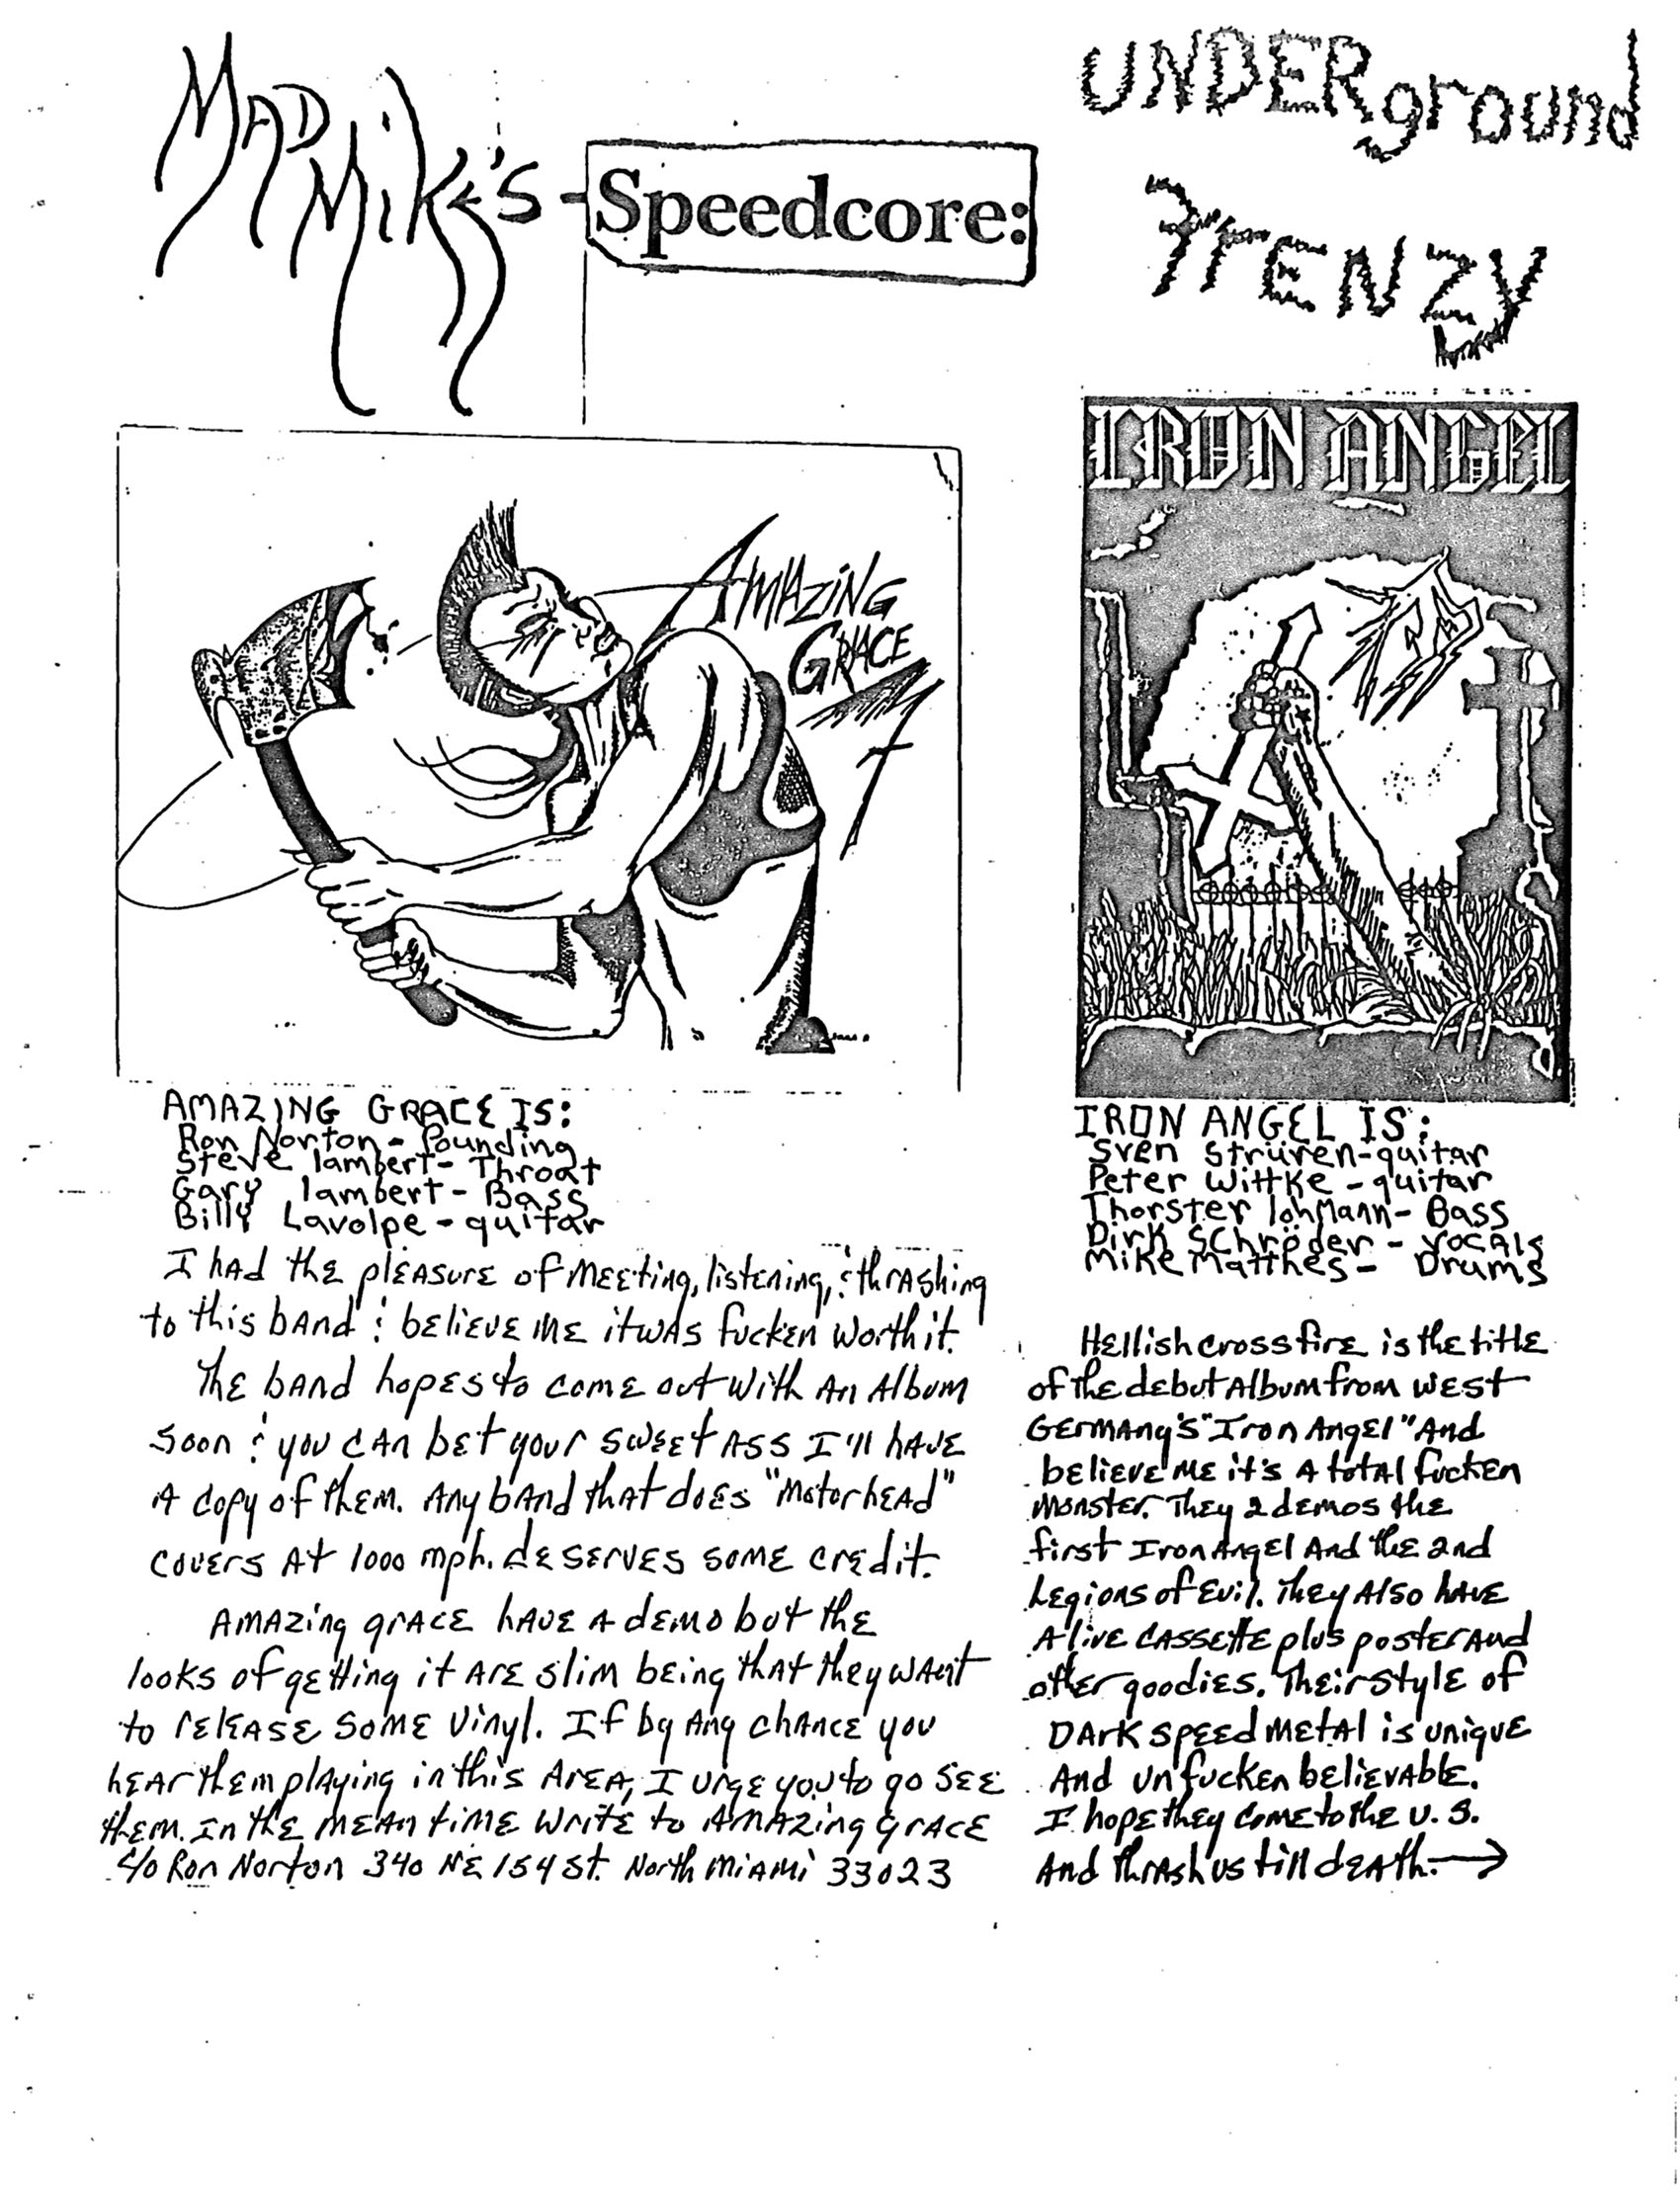 MAD MiKE'S - Speedcore:
UNDERground
FRENZY
AMAZING
GRACE
IRON ANGEL
AMAZING GRACE IS:
Ron Norton - Pounding
Steve lambert - Throat
Gary lambert - Bass
Billy Lavolpe - guitar
I had the pleasure of meeting, listening, & thrashing
to this band & believe me it was fucken worth it.
The band hopes to come out with an Album
soon & you can bet your sweet ass I'll have
a copy of them. Any band that does "Motorhead"
covers at 1000 mph. deserves some credit.
Amazing grace have a demo but the
looks of getting it are slim being that they want
to release some vinyl. If by any chance you
hear them playing in this area, I urge you to go see
them. In the mean time write to Amazing Grace
c/o Ron Norton 340 NE 154 St. North Miami 33023
IRON ANGEL IS:
Sven Strüven - guitar
Peter Wittke - guitar
Thorster lohmann - Bass
Dirk Schröder - vocals
Mike Matthes - Drums
Hellish crossfire is the title
of the debut Album from West
Germany's "Iron Angel" And
believe me it's a total fucken
monster. They 2 demos the
first Iron Angel And the 2nd
Legions of Evil. They Also have
A live cassette plus poster and
other goodies. Their style of
Dark speed metal is unique
And unfucken believable.
I hope they come to the U.S.
And thrash us till death. →